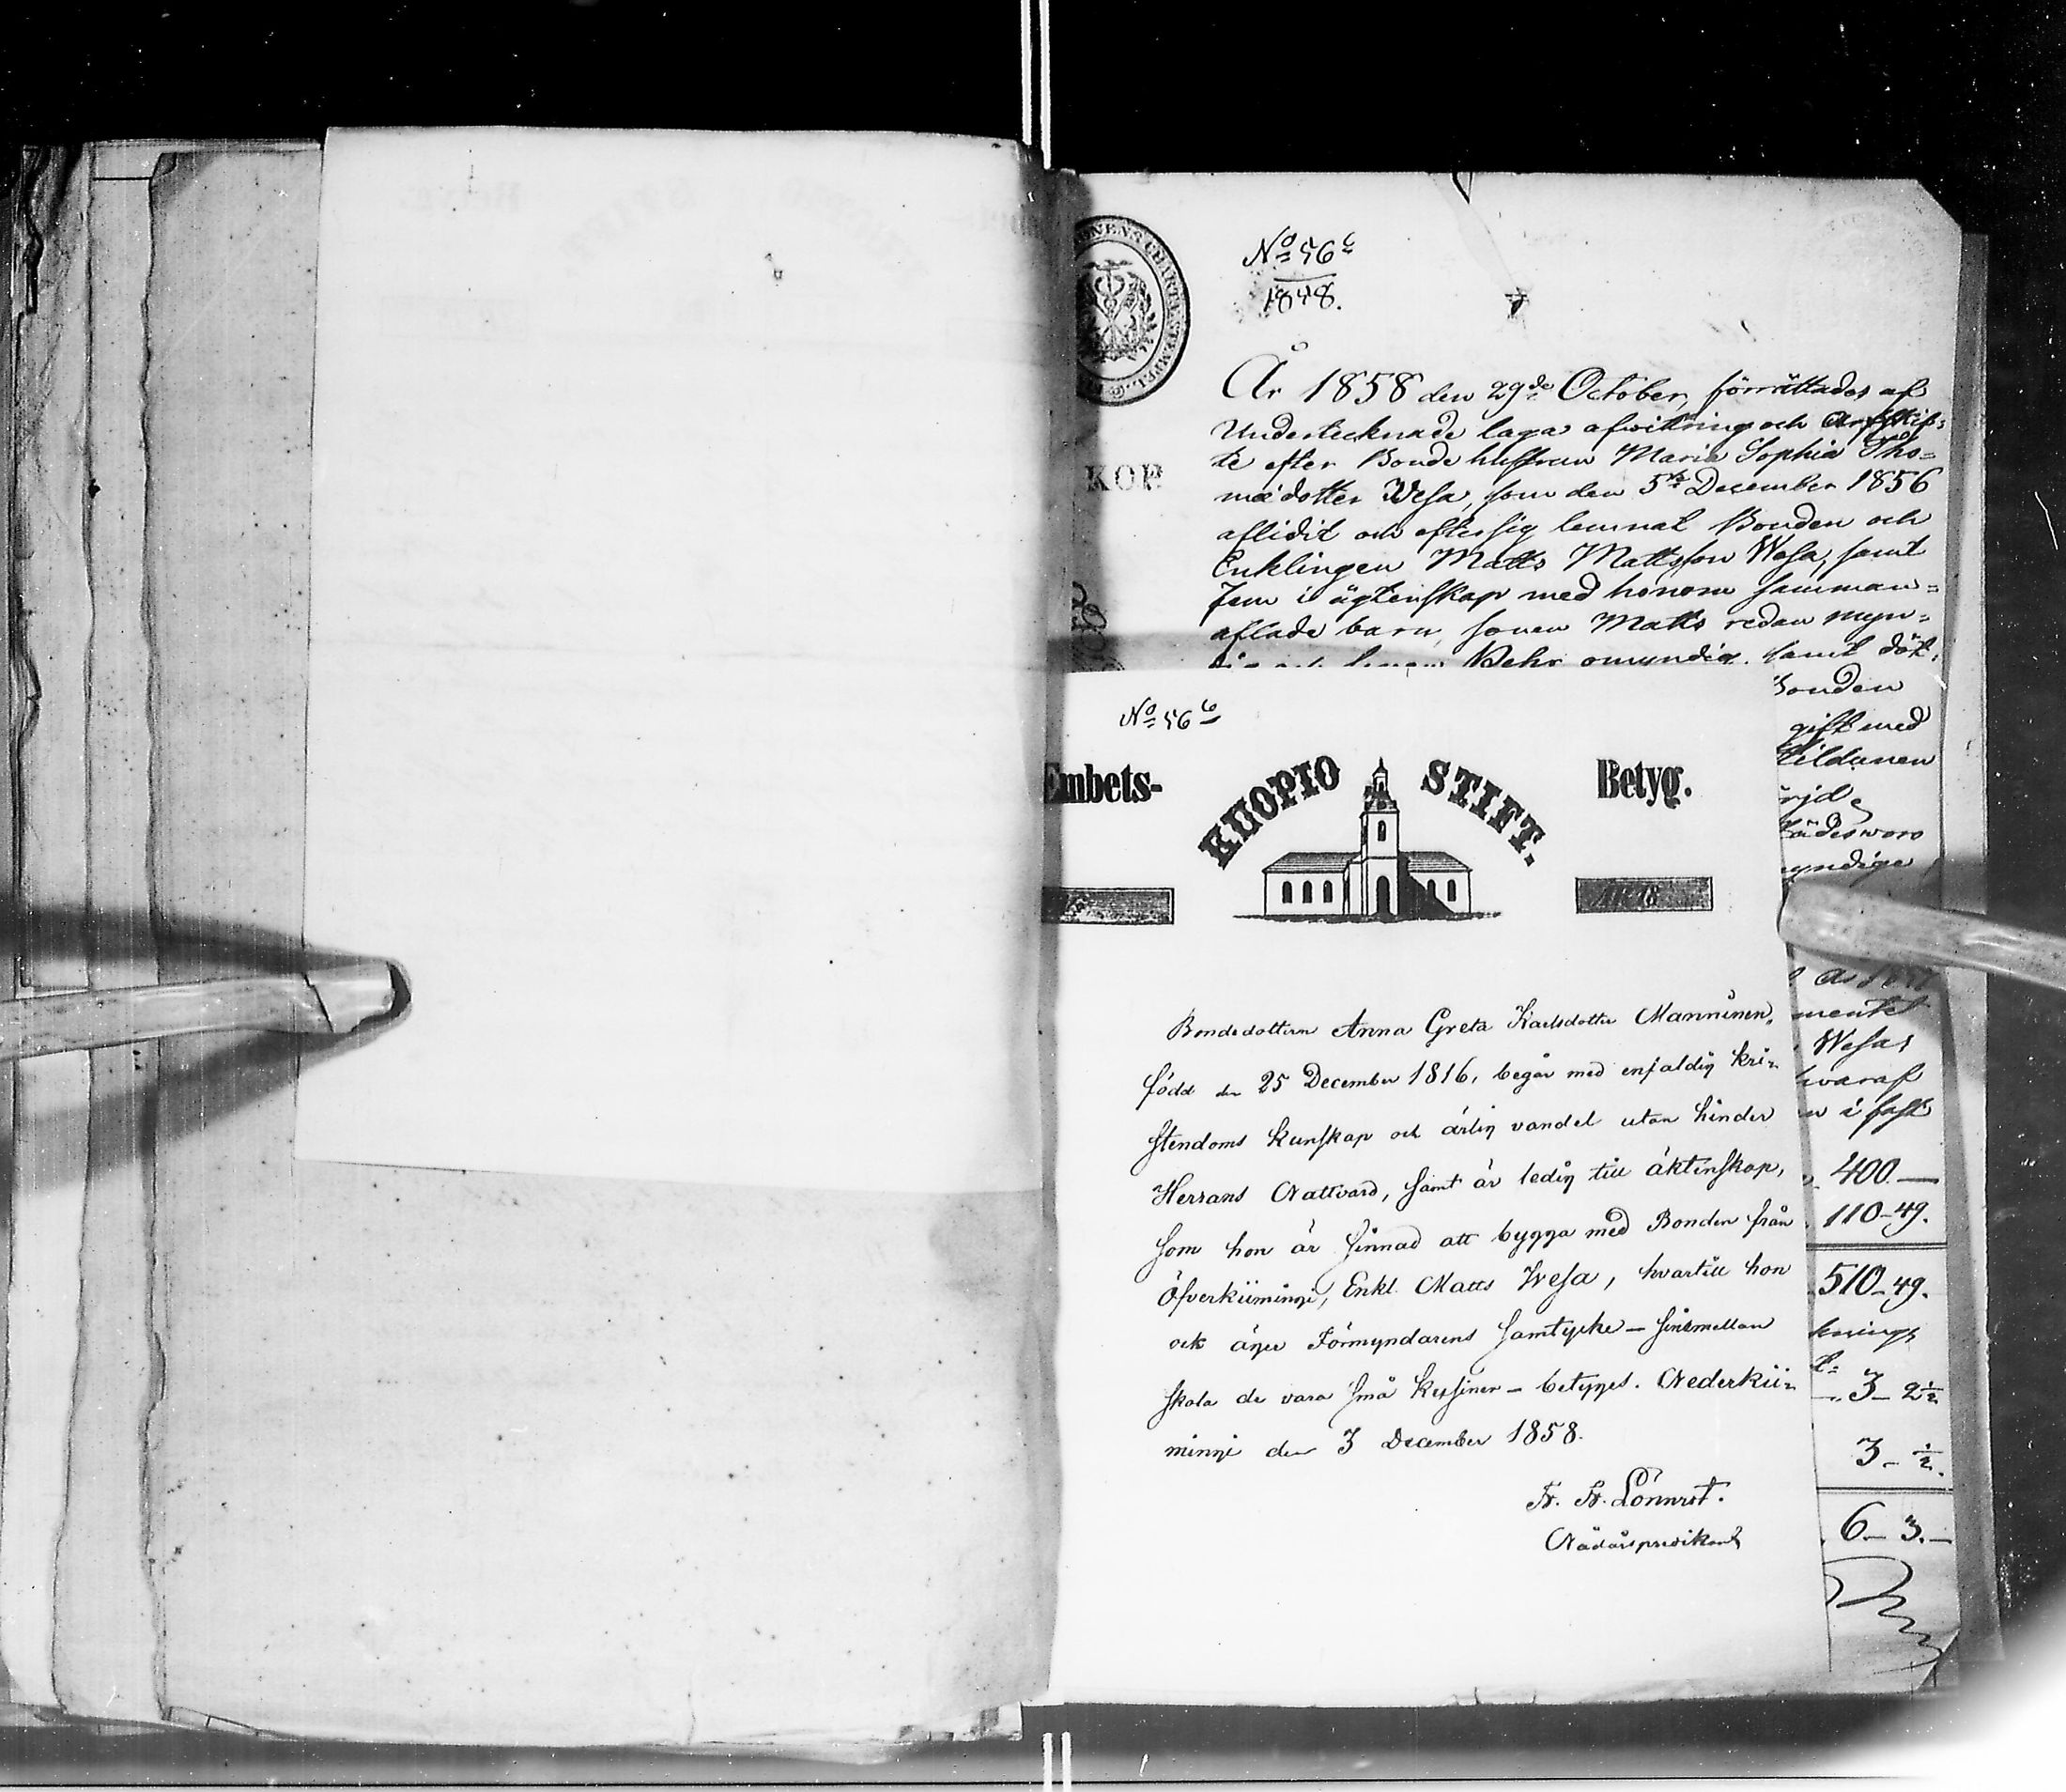 KOP.
No 56 c
1848.
År 1858 den 29de October, förrättades af
Undertecknade laga afwittring och Arfskif-
te efter Bondehustrun Maria Sophia Tho-
mædotter Wesa, som den 5te December 1856
aflidit och eftersig lemnat Bonden och
Enklingen Matts Mattsson Wesa, samt
Fem i ägtenskap med honom samman-
aflade barn, sonen Matts redan myn-
Pehr omyndig, samt döt-
Bonden
gift med
ådesworo
yndiga
Wesa,
hwaraf
i fast
400.—
110-49.
510-49.
3- 2½
3- ½.
6- 3.—
No 56 c
Embets-
KUOPIO STIFT.
Betyg.
Bondedottern Anna Greta Karlsdotter Manninen,
född den 25 December 1816, begår med enfaldig kri-
stendoms kunskap och ärlig vandel utan hinder
Herrans Nattvard, samt är ledig till äktenskap,
som hon är sinnad att bygga med Bonden från
Öfverkiimingi, Enkl. Matts Wesa, hvartill hon
ock äger Förmyndarens samtycke — sinsmellan
skola de vara små kusiner — betyges. Nederkii-
mingi den 3 December 1858.
Nådårspredikant